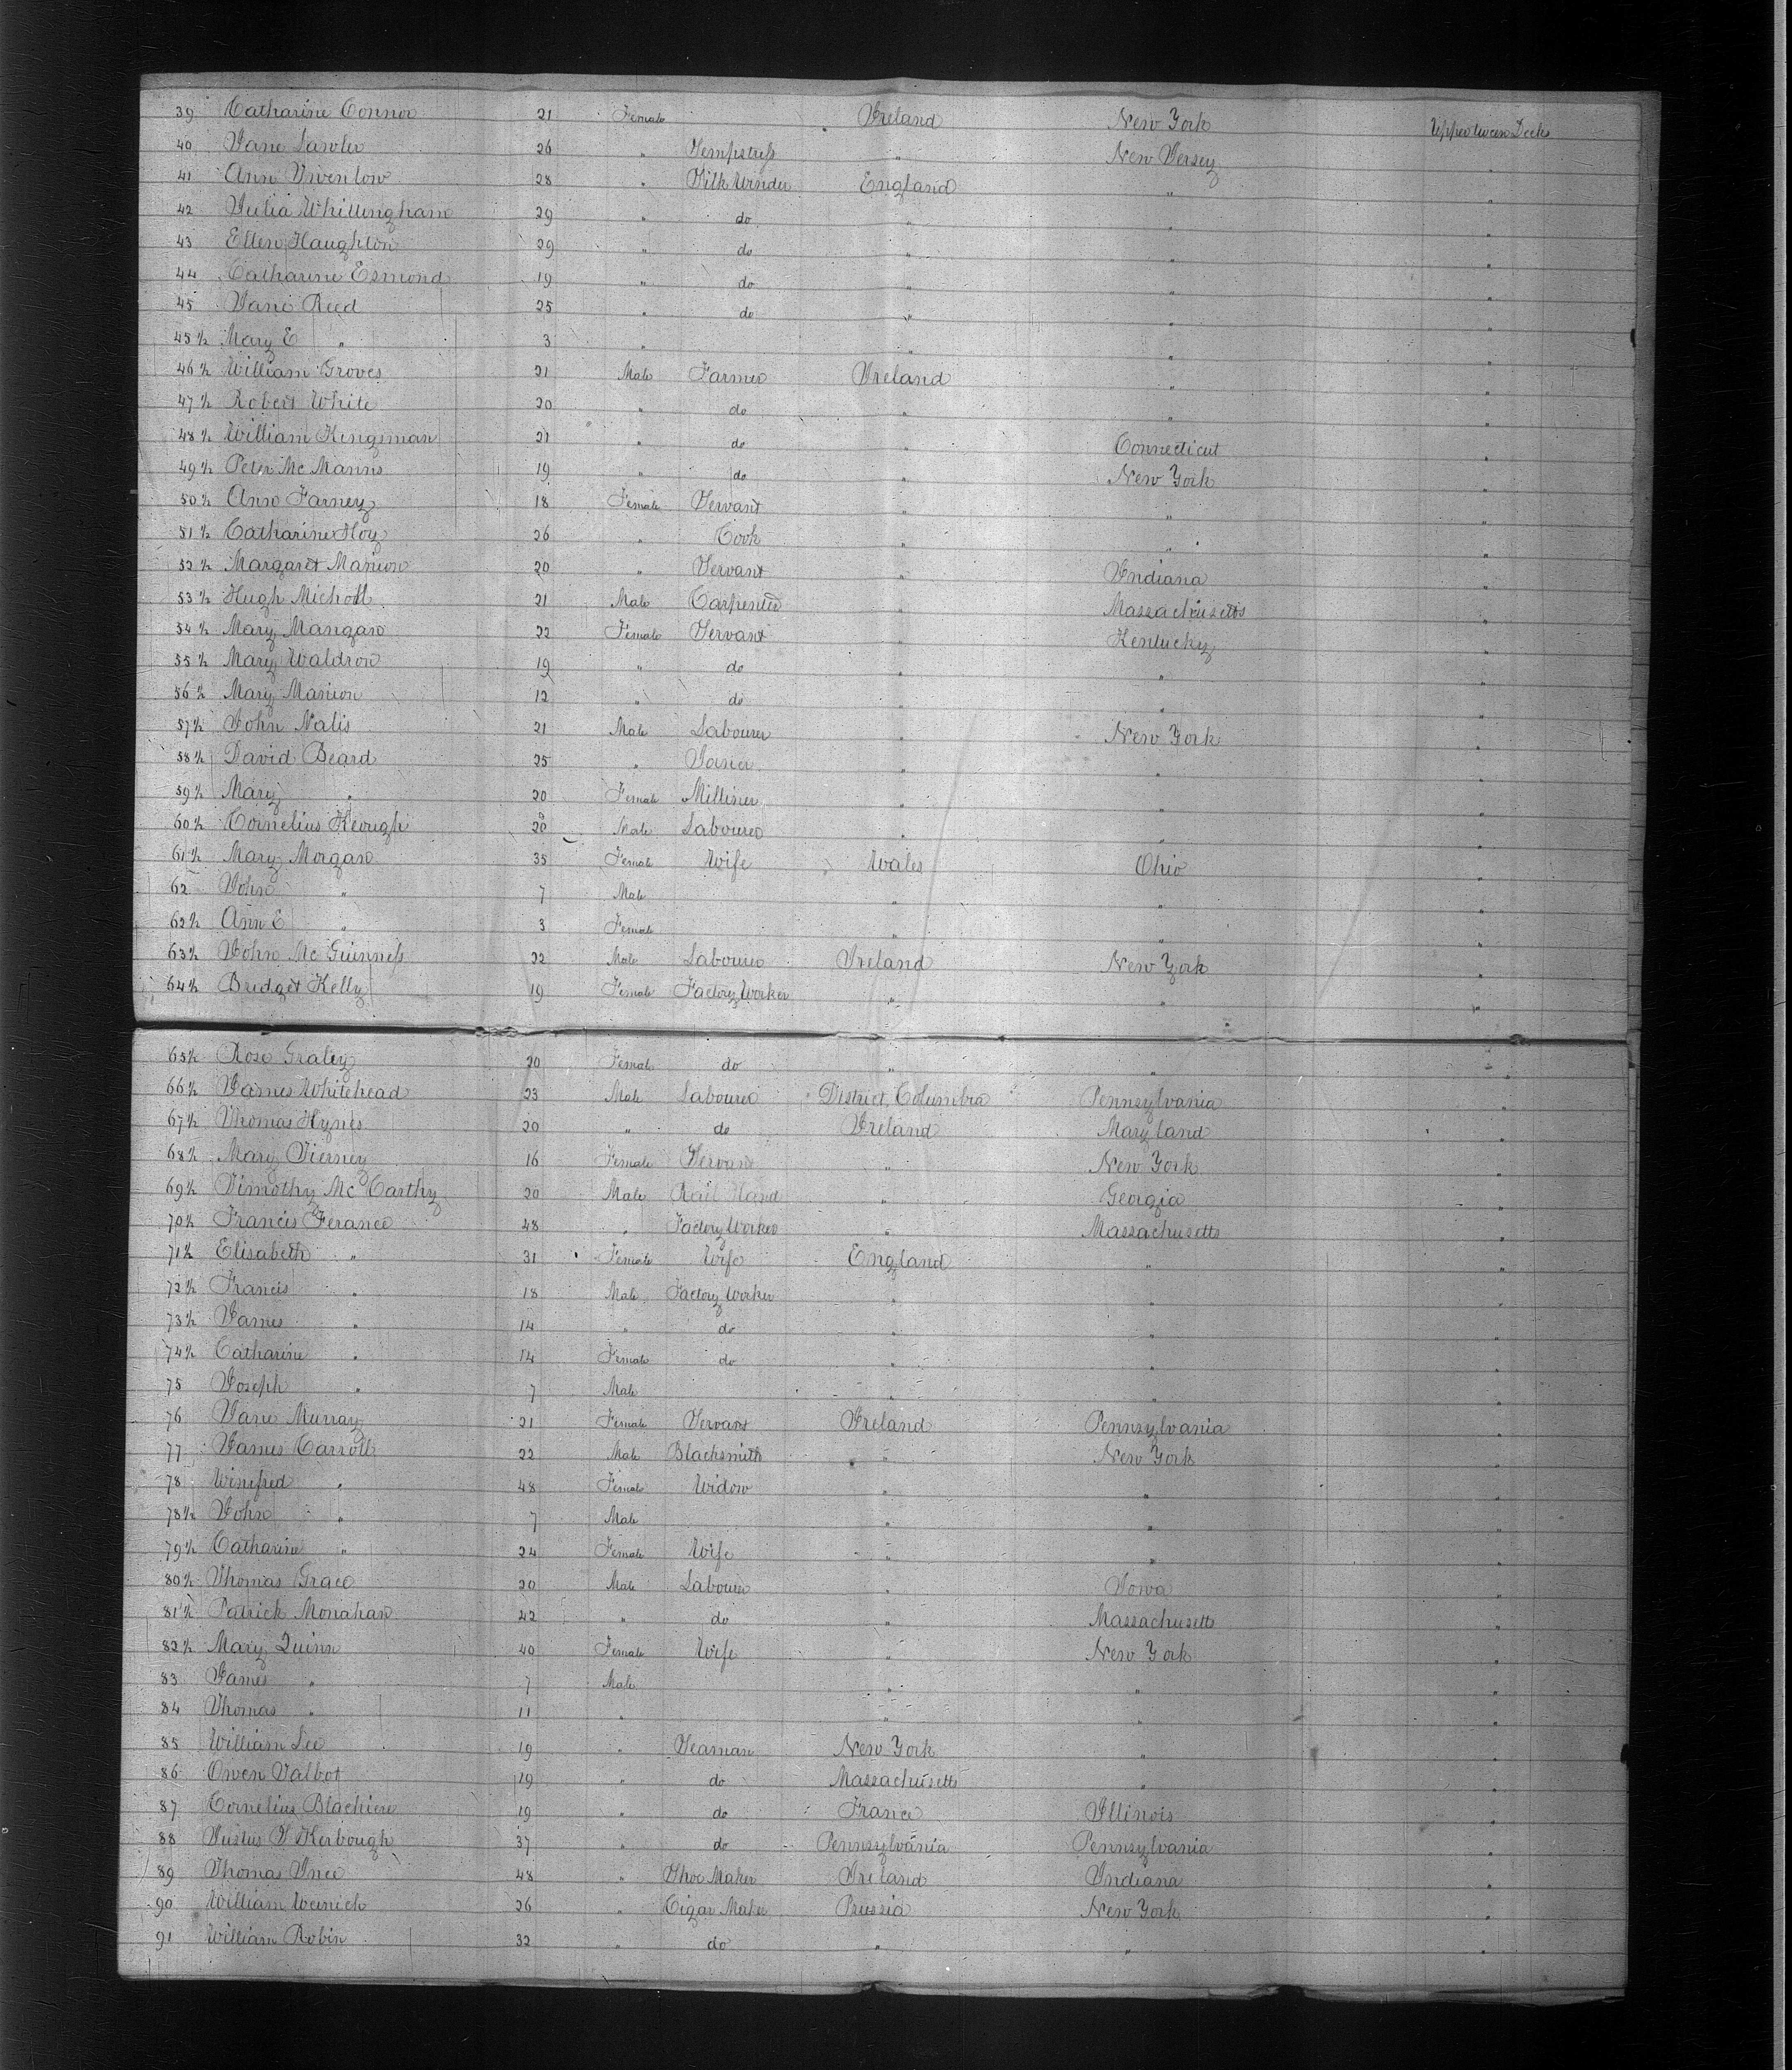 39 Catharine Connor 21 Female Ireland New York Upper tween Decks
40 Jane Lawler 26 " Sempstress " New Jersey "
41 Ann Swenlow 28 " Silk Winder England " "
42 Julia Whillingham 29 " do " " "
43 Ellen Haughton 29 " do " " "
44 Catharine Esmond 19 " do " " "
45 Jane Reed 25 " do " " "
45 1/2 Mary E " 3 " " " "
46 1/2 William Groves 21 Male Farmer Ireland " "
47 1/2 Robert White 20 " do " " "
48 1/2 William Kingsman 21 " do " Connecticut "
49 1/2 Peter Mc Manns 19 " do " New York "
50 1/2 Ann Farney 18 Female Servant " " "
51 1/2 Catharine Hoy 26 " Cook " " "
52 1/2 Margaret Manion 20 " Servant " Indiana "
53 1/2 Hugh Micholl 21 Male Carpenter " Massachusetts "
54 1/2 Mary Mangan 22 Female Servant " Kentucky "
55 1/2 Mary Waldron 19 " do " " "
56 1/2 Mary Manion 12 " do " " "
57 1/2 John Nalis 21 Male Labourer " New York "
58 1/2 David Beard 25 " " " "
59 1/2 Mary " 20 Female Milliner " " "
60 1/2 Cornelius Keough 20 Male Labourer " " "
61 1/2 Mary Morgan 35 Female Wife Wales Ohio "
62 John " 7 Male " " "
62 1/2 Ann E " 3 Female " " "
63 1/2 John Mc Guinness 22 Male Labourer Ireland New York "
64 1/2 Bridget Kelly 19 Female Factory Worker " " "
65 1/2 Rose Graley 20 Female do " " "
66 1/2 James Whitehead 23 Male Labourer District Columbia Pennsylvania "
67 1/2 Thomas Hynes 20 " do Ireland Maryland "
68 1/2 Mary Tierney 16 Female Servant " New York "
69 1/2 Timothy Mc Carthy 20 Male Rail Hand " Georgia "
70 1/2 Francis Ferance 48 " Factory Worker " Massachusetts "
71 1/2 Elisabeth " 31 Female Wife England " "
72 1/2 Francis " 18 Male Factory Worker " " "
73 1/2 James " 14 " do " " "
74 1/2 Catharine " 14 Female do " " "
75 Joseph " 7 Male " " "
76 Jane Murray 21 Female Servant Ireland Pennsylvania "
77 James Carroll 22 Male Blacksmith " New York "
78 Winifred " 48 Female Widow " " "
78 1/2 John " 7 Male " " "
79 1/2 Catharine " 24 Female Wife " " "
80 1/2 Thomas Grace 20 Male Labourer " Iowa "
81 1/2 Patrick Monahan 42 " do " Massachusetts "
82 1/2 Mary Quinn 40 Female Wife " New York "
83 James " 7 Male " " "
84 Thomas " 11 " " " "
85 William Lee 19 " Seaman New York " "
86 Owen Talbot 19 " do Massachusetts " "
87 Cornelius Blachiere 19 " do France Illinois "
88 Justus J Kerbough 37 " do Pennsylvania Pennsylvania "
89 Thomas Ince 48 " Shoe Maker Ireland Indiana "
90 William Weinich 26 " Cigar Maker Prussia New York "
91 William Robin 32 " do " " "